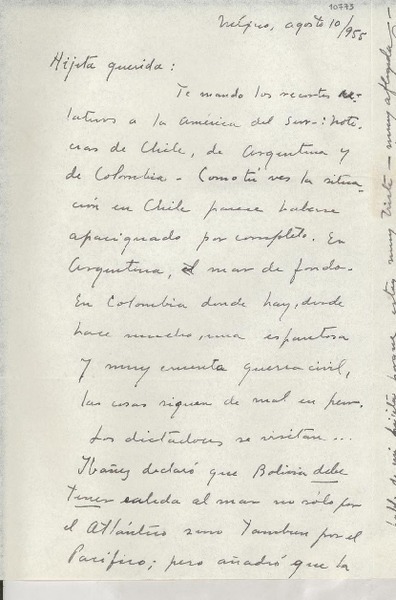 10773
México, agosto 10/955
Hijita querida:
Te mando los recortes re-
lativos a la América del Sur-: noti-
cias de Chile, de Argentina y
de Colombia - Como tú ves la situa-
ción en Chile parece haberse
apaciguado por completo. En
Argentina, el mar de fondo -
En Colombia donde hay, desde
hace mucho, una espantosa
y muy cruenta guerra civil,
las cosas siguen de mal en peor.
Los dictadores se visitan...
Ibáñez declaró que Bolivia debe
tener salida al mar no sólo por
el Atlántico sino también por el
Pacífico; pero añadió que la
de mi hijita porque estoy muy triste - muy afligida -